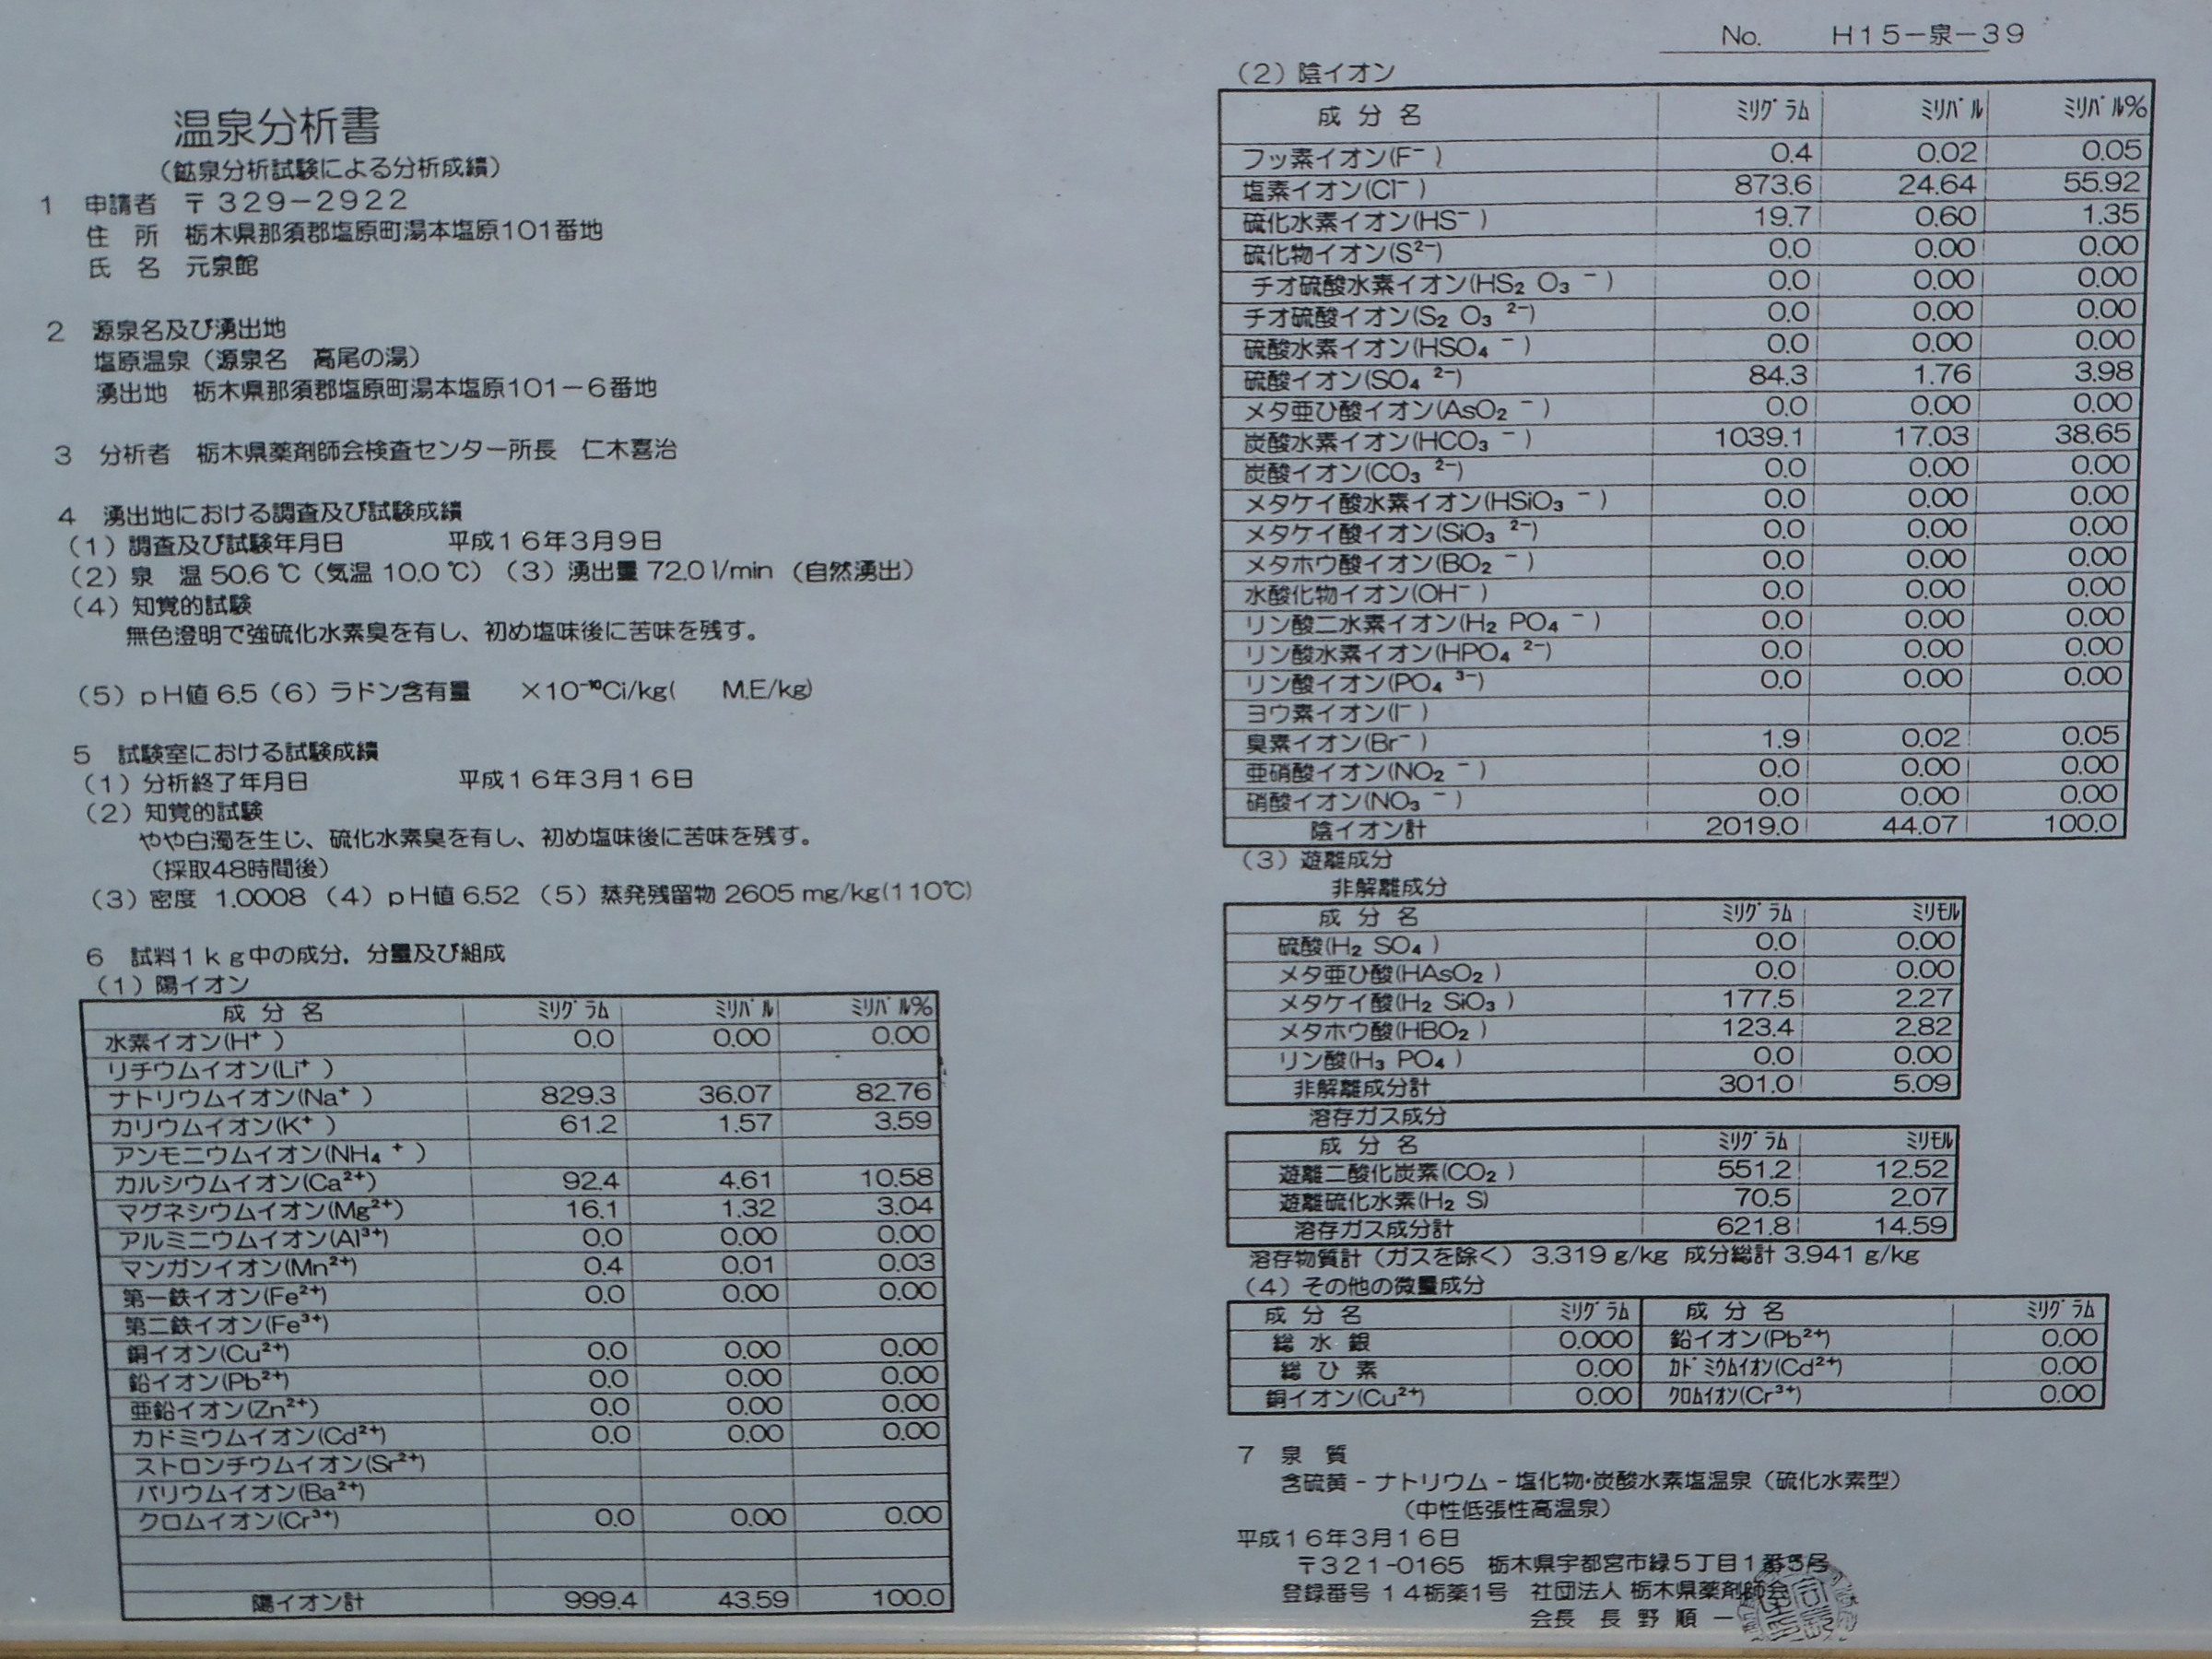 温泉分析書
（鉱泉分析試験による分析成績）
1 申請者 〒329－2922
住 所 栃木県那須郡塩原町湯本塩原101番地
氏 名 元泉館
2 源泉名及び湧出地
塩原温泉（源泉名 高尾の湯）
湧出地 栃木県那須郡塩原町湯本塩原101－6番地
3 分析者 栃木県薬剤師会検査センター所長 仁木喜治
4 湧出地における調査及び試験成績
（1）調査及び試験年月日 平成16年3月9日
（2）泉 温 50.6 ℃（気温 10.0 ℃）（3）湧出量 72.0 l/min （自然湧出）
（4）知覚的試験
無色澄明で強硫化水素臭を有し、初め塩味後に苦味を残す。
（5）pH値 6.5（6）ラドン含有量 ×10⁻¹⁰Ci/kg( M.E/kg)
5 試験室における試験成績
（1）分析終了年月日 平成16年3月16日
（2）知覚的試験
やや白濁を生じ、硫化水素臭を有し、初め塩味後に苦味を残す。
（採取48時間後）
（3）密度 1.0008（4）pH値 6.52（5）蒸発残留物 2605 mg/kg(110℃)
6 試料1kg中の成分，分量及び組成
（1）陽イオン
成 分 名 ﾐﾘｸﾞﾗﾑ ﾐﾘﾊﾞﾙ ﾐﾘﾊﾞﾙ%
水素イオン(H⁺ ) 0.0 0.00 0.00
リチウムイオン(Li⁺ )
ナトリウムイオン(Na⁺ ) 829.3 36.07 82.76
カリウムイオン(K⁺ ) 61.2 1.57 3.59
アンモニウムイオン(NH₄ ⁺ )
カルシウムイオン(Ca²⁺) 92.4 4.61 10.58
マグネシウムイオン(Mg²⁺) 16.1 1.32 3.04
アルミニウムイオン(Al³⁺) 0.0 0.00 0.00
マンガンイオン(Mn²⁺) 0.4 0.01 0.03
第一鉄イオン(Fe²⁺) 0.0 0.00 0.00
第二鉄イオン(Fe³⁺)
銅イオン(Cu²⁺) 0.0 0.00 0.00
鉛イオン(Pb²⁺) 0.0 0.00 0.00
亜鉛イオン(Zn²⁺) 0.0 0.00 0.00
カドミウムイオン(Cd²⁺) 0.0 0.00 0.00
ストロンチウムイオン(Sr²⁺)
バリウムイオン(Ba²⁺)
クロムイオン(Cr³⁺) 0.0 0.00 0.00
陽イオン計 999.4 43.59 100.0
No. H15－泉－39
（2）陰イオン
成 分 名 ﾐﾘｸﾞﾗﾑ ﾐﾘﾊﾞﾙ ﾐﾘﾊﾞﾙ%
フッ素イオン(F⁻ ) 0.4 0.02 0.05
塩素イオン(Cl⁻ ) 873.6 24.64 55.92
硫化水素イオン(HS⁻ ) 19.7 0.60 1.35
硫化物イオン(S²⁻) 0.0 0.00 0.00
チオ硫酸水素イオン(HS₂ O₃ ⁻ ) 0.0 0.00 0.00
チオ硫酸イオン(S₂ O₃ ²⁻) 0.0 0.00 0.00
硫酸水素イオン(HSO₄ ⁻ ) 0.0 0.00 0.00
硫酸イオン(SO₄ ²⁻) 84.3 1.76 3.98
メタ亜ひ酸イオン(AsO₂ ⁻ ) 0.0 0.00 0.00
炭酸水素イオン(HCO₃ ⁻ ) 1039.1 17.03 38.65
炭酸イオン(CO₃ ²⁻) 0.0 0.00 0.00
メタケイ酸水素イオン(HSiO₃ ⁻ ) 0.0 0.00 0.00
メタケイ酸イオン(SiO₃ ²⁻) 0.0 0.00 0.00
メタホウ酸イオン(BO₂ ⁻ ) 0.0 0.00 0.00
水酸化物イオン(OH⁻ ) 0.0 0.00 0.00
リン酸二水素イオン(H₂ PO₄ ⁻ ) 0.0 0.00 0.00
リン酸水素イオン(HPO₄ ²⁻) 0.0 0.00 0.00
リン酸イオン(PO₄ ³⁻) 0.0 0.00 0.00
ヨウ素イオン(I⁻ )
臭素イオン(Br⁻ ) 1.9 0.02 0.05
亜硝酸イオン(NO₂ ⁻ ) 0.0 0.00 0.00
硝酸イオン(NO₃ ⁻ ) 0.0 0.00 0.00
陰イオン計 2019.0 44.07 100.0
（3）遊離成分
非解離成分
成 分 名 ﾐﾘｸﾞﾗﾑ ﾐﾘﾓﾙ
硫酸(H₂ SO₄ ) 0.0 0.00
メタ亜ひ酸(HAsO₂ ) 0.0 0.00
メタケイ酸(H₂ SiO₃ ) 177.5 2.27
メタホウ酸(HBO₂ ) 123.4 2.82
リン酸(H₃ PO₄ ) 0.0 0.00
非解離成分計 301.0 5.09
溶存ガス成分
成 分 名 ﾐﾘｸﾞﾗﾑ ﾐﾘﾓﾙ
遊離二酸化炭素(CO₂ ) 551.2 12.52
遊離硫化水素(H₂ S) 70.5 2.07
溶存ガス成分計 621.8 14.59
溶存物質計（ガスを除く） 3.319 g/kg 成分総計 3.941 g/kg
（4）その他の微量成分
成 分 名 ﾐﾘｸﾞﾗﾑ 成 分 名 ﾐﾘｸﾞﾗﾑ
総 水 銀 0.000 鉛イオン(Pb²⁺) 0.00
総 ひ 素 0.00 ｶﾄﾞﾐｳﾑｲｵﾝ(Cd²⁺) 0.00
銅イオン(Cu²⁺) 0.00 ｸﾛﾑｲｵﾝ(Cr³⁺) 0.00
7 泉 質
含硫黄－ナトリウム－塩化物・炭酸水素塩温泉（硫化水素型）
（中性低張性高温泉）
平成16年3月16日
〒321-0165 栃木県宇都宮市緑5丁目1番5号
登録番号 14栃薬1号 社団法人 栃木県薬剤師会
会長 長 野 順 一